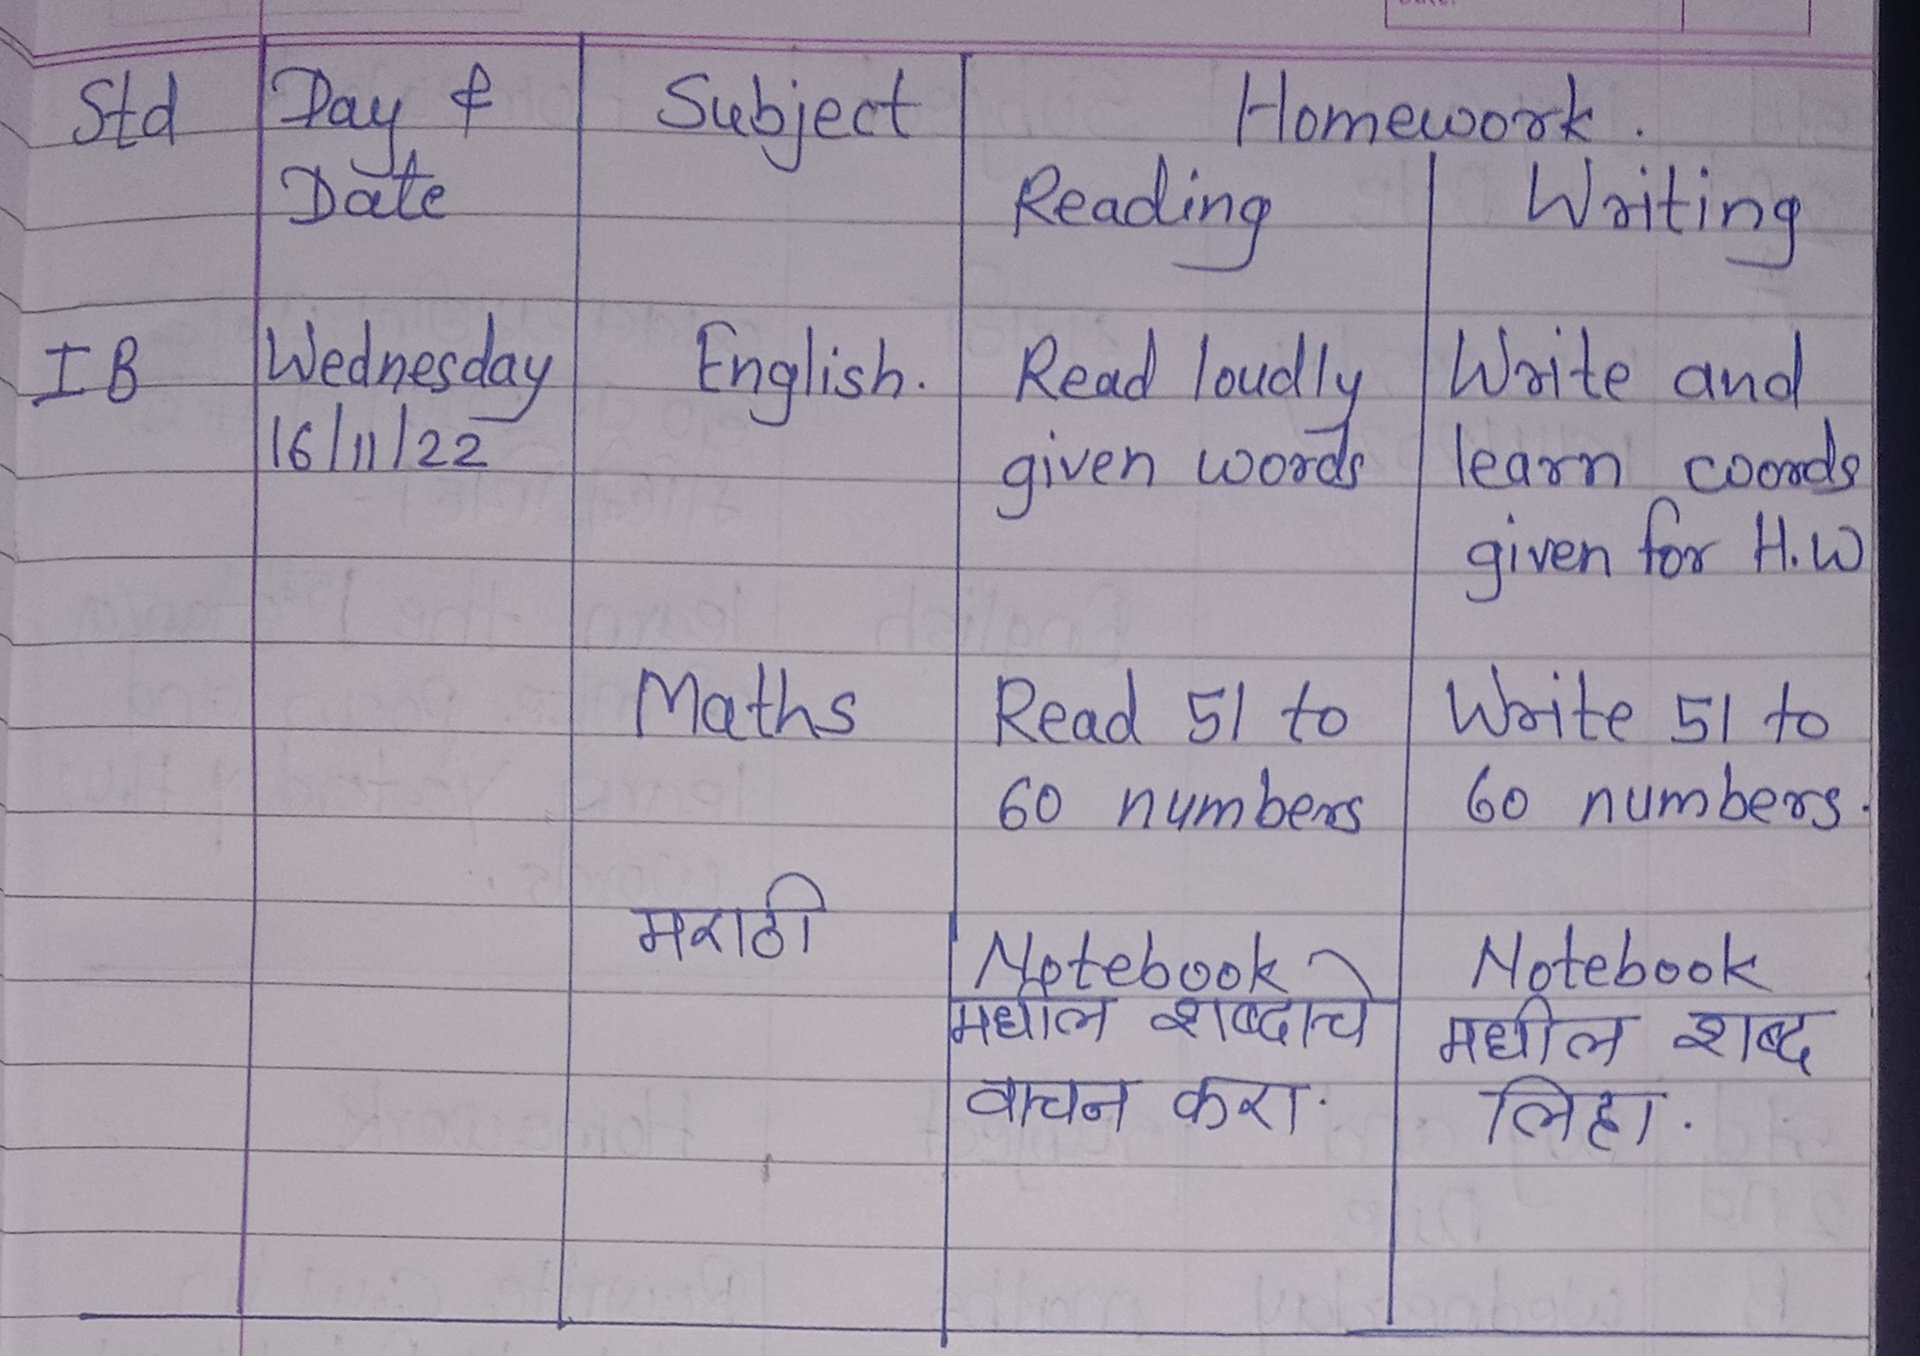 Std Day & Subject Homework.
Date Reading Writing
I B Wednesday English. Read loudly Write and
16/11/22 given words learn words
given for H.W
Maths Read 51 to Write 51 to
60 numbers 60 numbers.
मराठी Notebook Notebook
मधील शब्दाचे मधील शब्द
वाचन करा. लिहा.